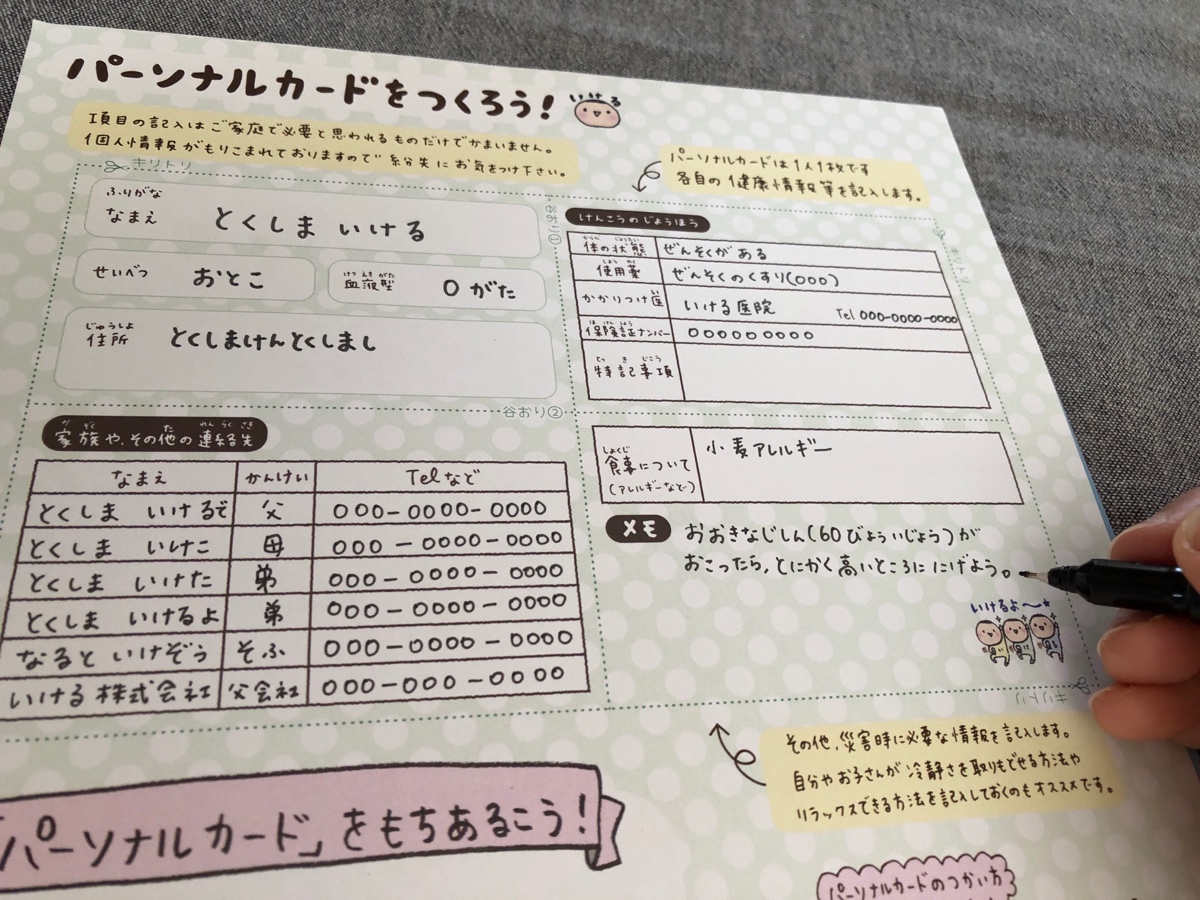 パーソナルカードをつくろう!
いける
項目の記入はご家庭で必要と思われるものだけでかまいません。
個人情報がもりこまれておりますので紛失にお気をつけ下さい。
パーソナルカードは1人1枚です
各自の健康情報等を記入します。
キリトリ
ふりがな
なまえ とくしま いける
せいべつ おとこ
けつえきがた
血液型 O がた
じゅうしょ
住所 とくしまけんとくしまし
谷おり①
キリトリ
けんこうのじょうほう
からだ じょうたい
体の状態 ぜんそくがある
しようやく
使用薬 ぜんそくのくすり(ooo)
かかりつけ医 いける医院 Tel 000-0000-0000
ほけんしょう
保険証ナンバー 000000000
とっきじこう
特記事項
谷おり②
かぞく た れんらくさき
家族や、その他の連絡先
なまえ かんけい Telなど
とくしま いけるで 父 000-0000-0000
とくしま いけこ 母 000-0000-0000
とくしま いけた 弟 000-0000-0000
とくしま いけるよ 弟 000-0000-0000
なると いけぞう そふ 000-0000-0000
いける株式会社 父会社 000-000-0000
しょくじ
食事について
(アレルギーなど)
小麦アレルギー
メモ おおきなじしん(60びょういじょう)が
おこったら、とにかく高いところににげよう。
いけるよ〜
キリトリ
その他、災害時に必要な情報を記入します。
自分やお子さんが冷静さを取りもどせる方法や
リラックスできる方法を記入しておくのもオススメです。
「パーソナルカード」をもちあるこう!
パーソナルカードのつかい方